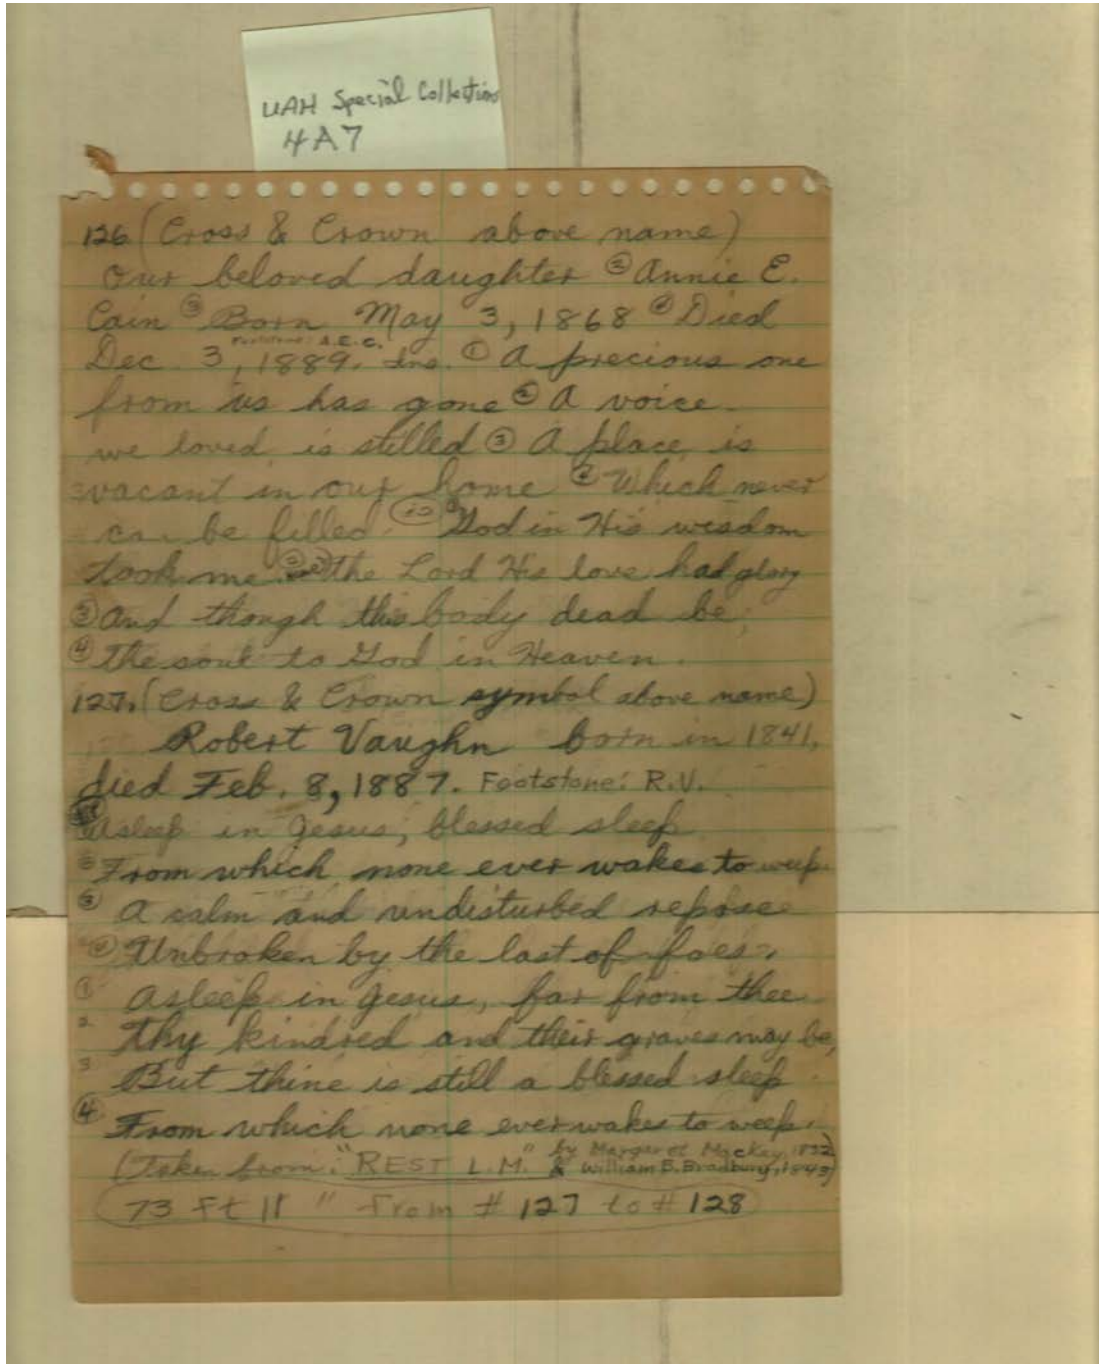 UAH Special Collections
4A7
126. (Cross & Crown above name)
Our beloved daughter ② Annie E.
Cain ③ Born May 3, 1868 ④ Died
Footstone: A.E.C.
Dec. 3, 1889. Ins. ① A precious one
from us has gone ② A voice
we loved is stilled ③ A place is
vacant in our home ④ Which never
can be filled. ① God in His wisdom
took me ② the Lord His love had
③ And though this body dead be,
④ The soul to God in Heaven.
127. (Cross & Crown symbol above name)
Robert Vaughn born in 1841,
died Feb. 8, 1887. Footstone: R.V.
Asleep in Jesus, blessed sleep
② From which none ever wakes to weep.
③ A calm and undisturbed repose
④ Unbroken by the last of foes.
① Asleep in Jesus, far from thee
2. Thy kindred and their graves may be,
3 But thine is still a blessed sleep
④ From which none ever wakes to weep.
(Taken from: "REST L.M." by Margaret Mackay, 1832
& William B. Bradbury, 1843)
73 Ft 11 " From # 127 to # 128